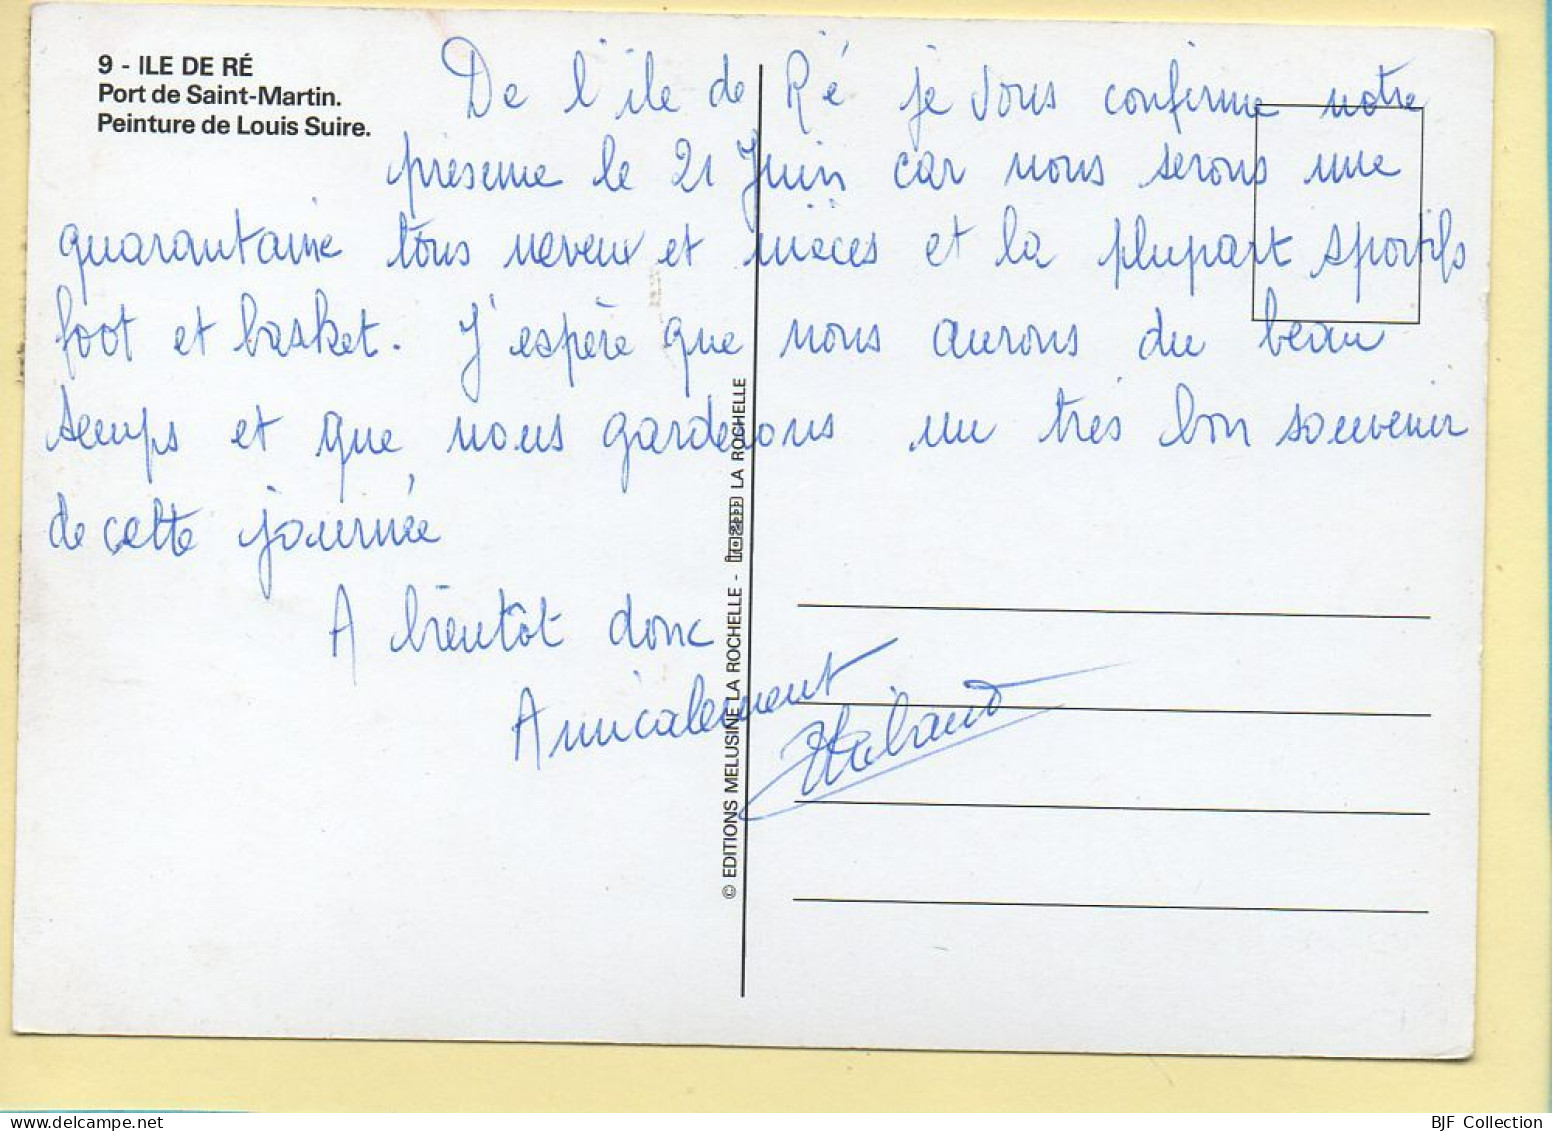 9 - ILE DE RÉ
Port de Saint-Martin.
Peinture de Louis Suire.
De l'ile de Ré je vous confirme notre
présence le 21 Juin car nous serons une
quarantaine tous neveux et nièces et la plupart sportifs
foot et basket. J'espère que nous aurons du beau
temps et que nous garderons un très bon souvenir
de cette journée
A bientôt donc
Amicalement
© EDITIONS MELUSINE LA ROCHELLE - LA ROCHELLE
BJF Collection